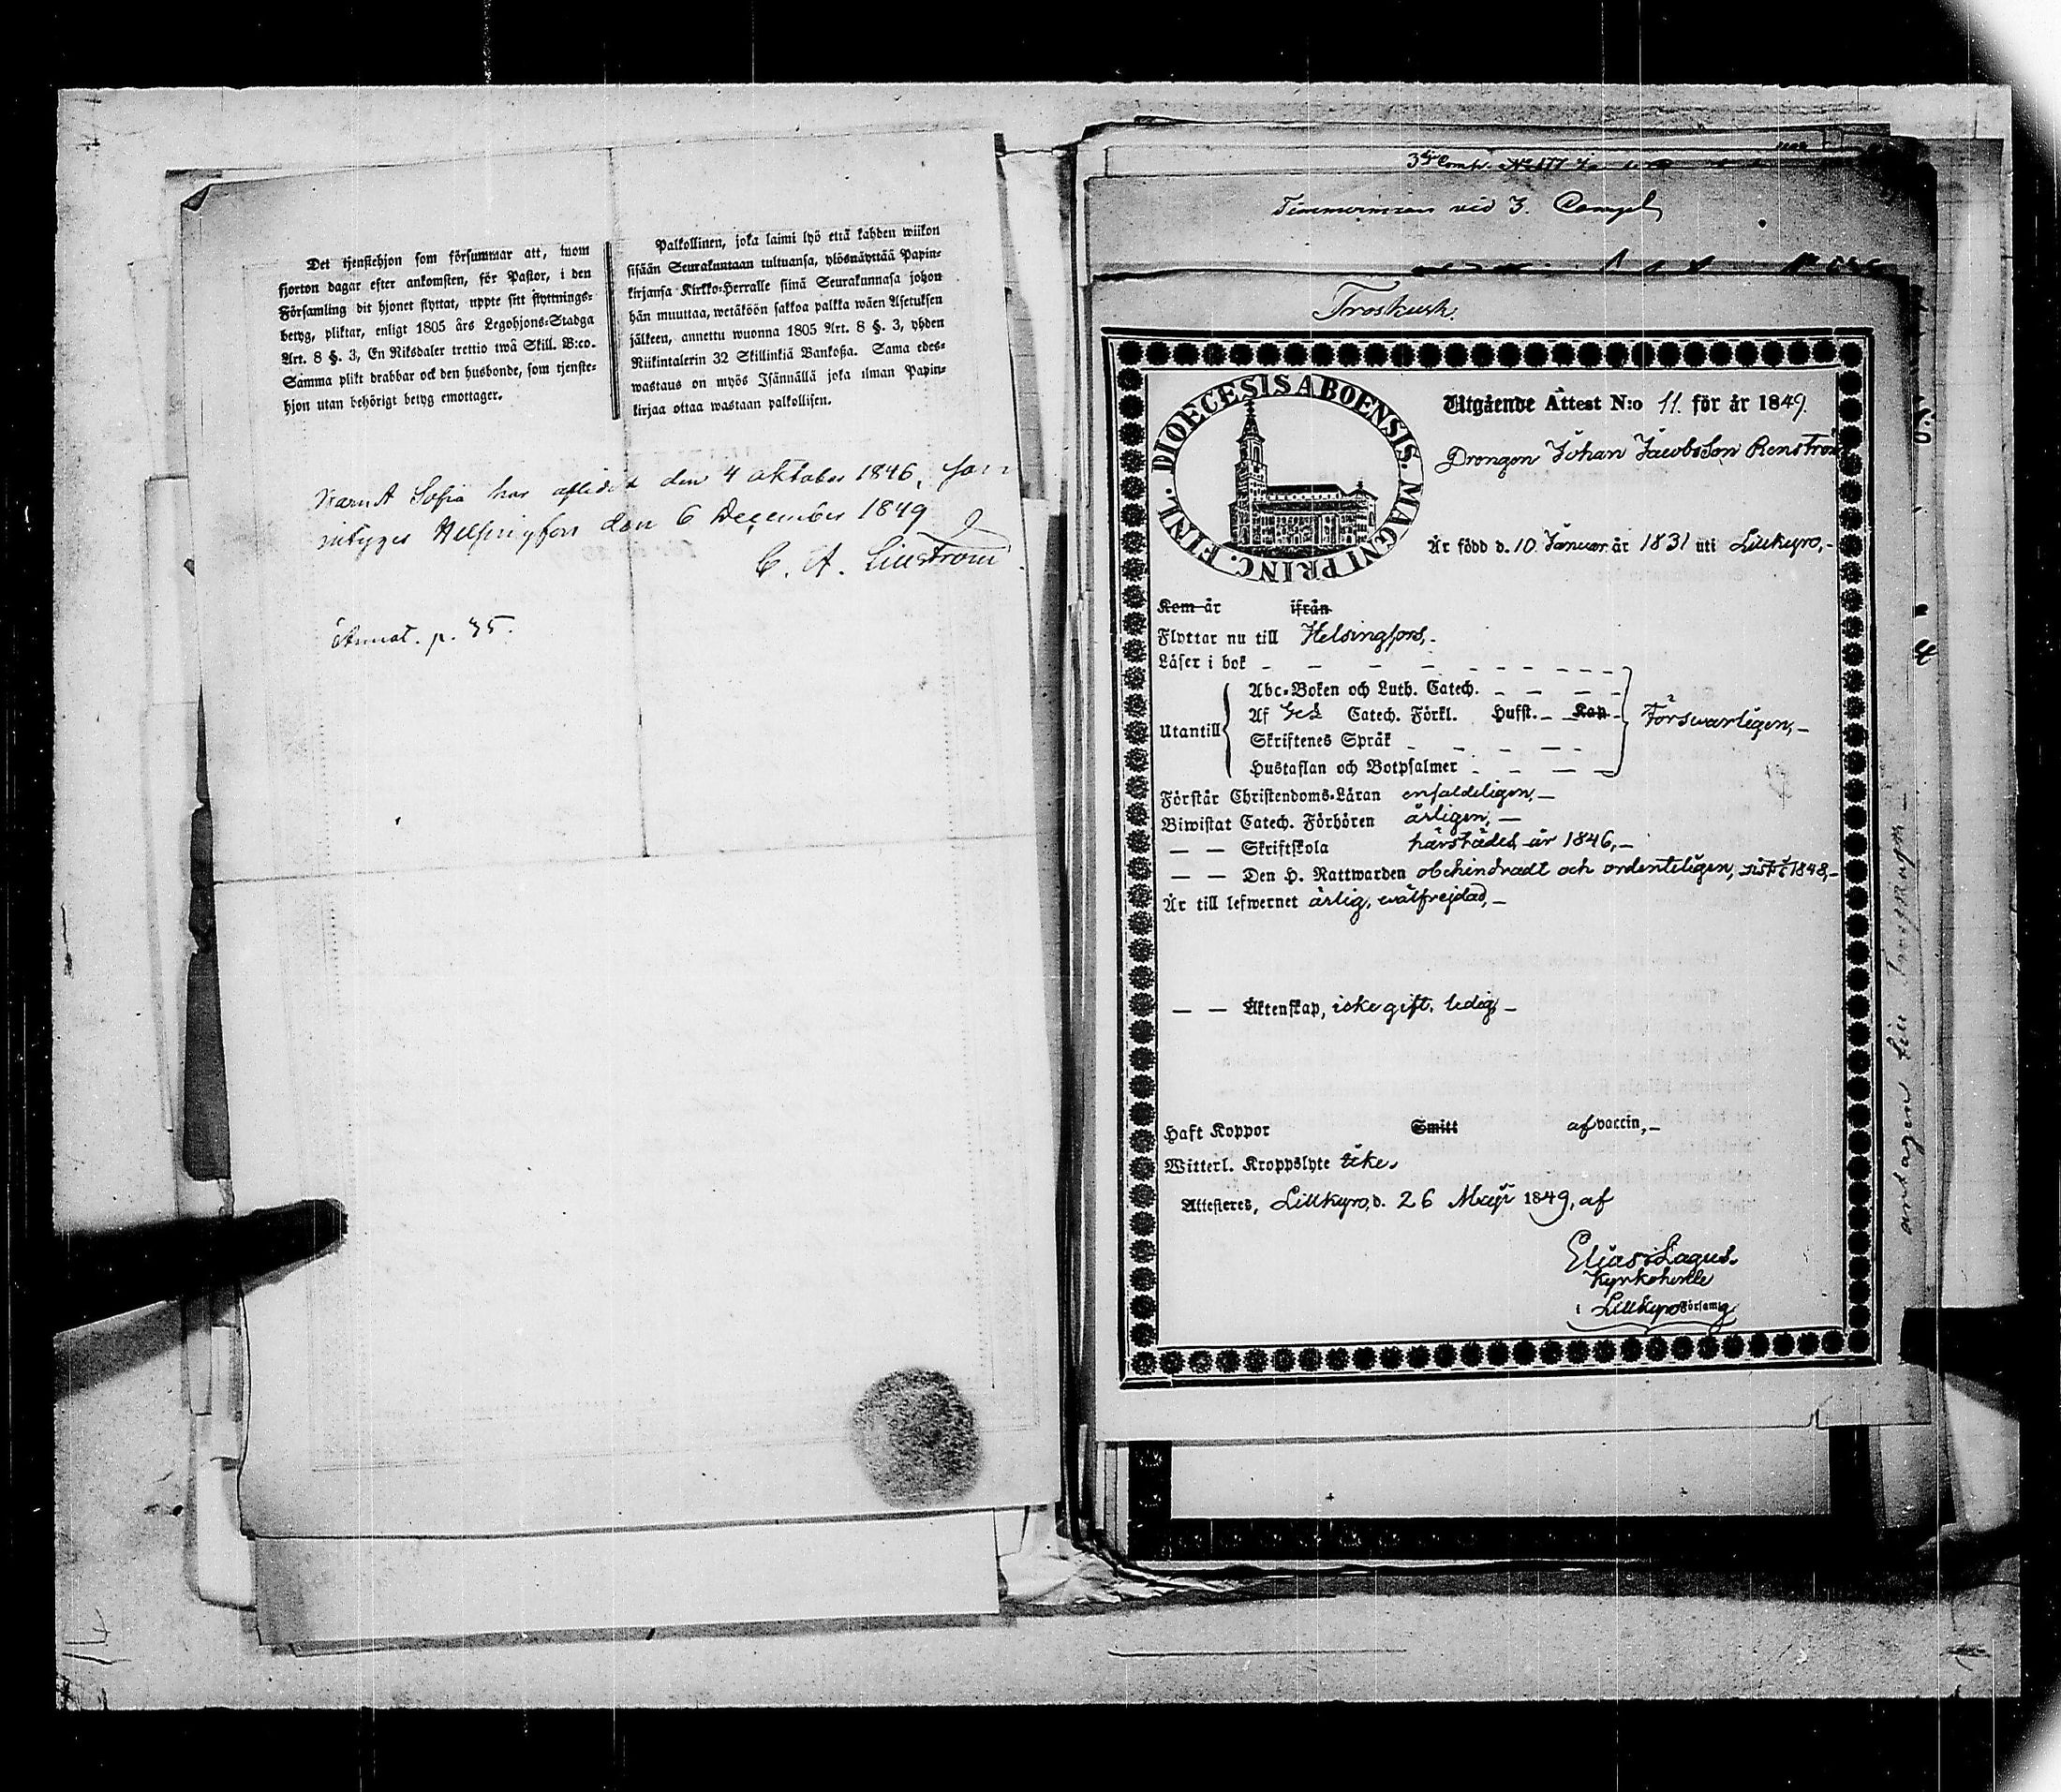 Det tjenstehjon som försummar att, inom
fjorton dagar efter ankomsten, för Pastor, i den
Församling dit hjonet flyttat, uppte sitt flyttnings-
betyg, pliktar, enligt 1805 års Legohjons-Stadga
Art. 8 §. 3, En Riksdaler trettio twå Skill. B:co.
Samma plikt drabbar ock den husbonde, som tjenste-
hjon utan behörigt betyg emottager.
Palkollinen, joka laimi lyö että kahden wiikon
sisään Seurakuntaan tultuansa, ylösnäyttää Papin-
kirjansa Kirkko-Herralle siinä Seurakunnasa johon
hän muuttaa, wetäköön sakkoa palkka wäen Asetuksen
jälkeen, annettu wuonna 1805 Art. 8 §. 3, yhden
Riikintalerin 32 Skillinkiä Bankosa. Sama edes-
wastaus on myös Isännällä joka ilman Papin-
kirjaa ottaa wastaan palkollisen.
Barnet Sofia har aflidit den 4 oktober 1846, som
intygges Helsingfors den 6 December 1849
C. A. Lillström
p. 35.
3dje Comp. No
Timmerman vid 3. Compet
Troskusk.
DIOECESIS ABOENSIS. MAGNI PRINC. FINL.
Utgående Attest N:o 11. för år 1849.
Drengen Johan Jacobsson Renström
Är född d. 10 Januar. år 1831 uti Lillkyro,-
Kom år ifrån
Flyttar nu till Helsingfors,-
Läser i bok - - - - - - - - -
Abc-Boken och Luth. Catech. - - - -
Af Catech. Förkl. Husst. - Kap -
Utantill
Försvarligen,-
Skriftenes Språk - - - - -
Hustaflan och Botpsalmer - - - -
Förstår Christendoms-Läran enfaldeligen,-
Biwistat Catech. Förhören årligen,-
— — Skriftskola härstädes år 1846,-
— — Den H. Nattwarden obehindradt och ordenteligen, sist i 1848,-
Är till lefwernet ärlig, wälfrejdad,-
— — Äktenskap, icke gift. ledig,-
Haft Koppor Smitt af vaccin,-
Witterl. Kroppslyte icke.
Attesteres, Lillkyro, d. 26 Maji 1849, af
Elias Lagus.
Kyrkoherde
i Lillkyro Församlg
antagen till